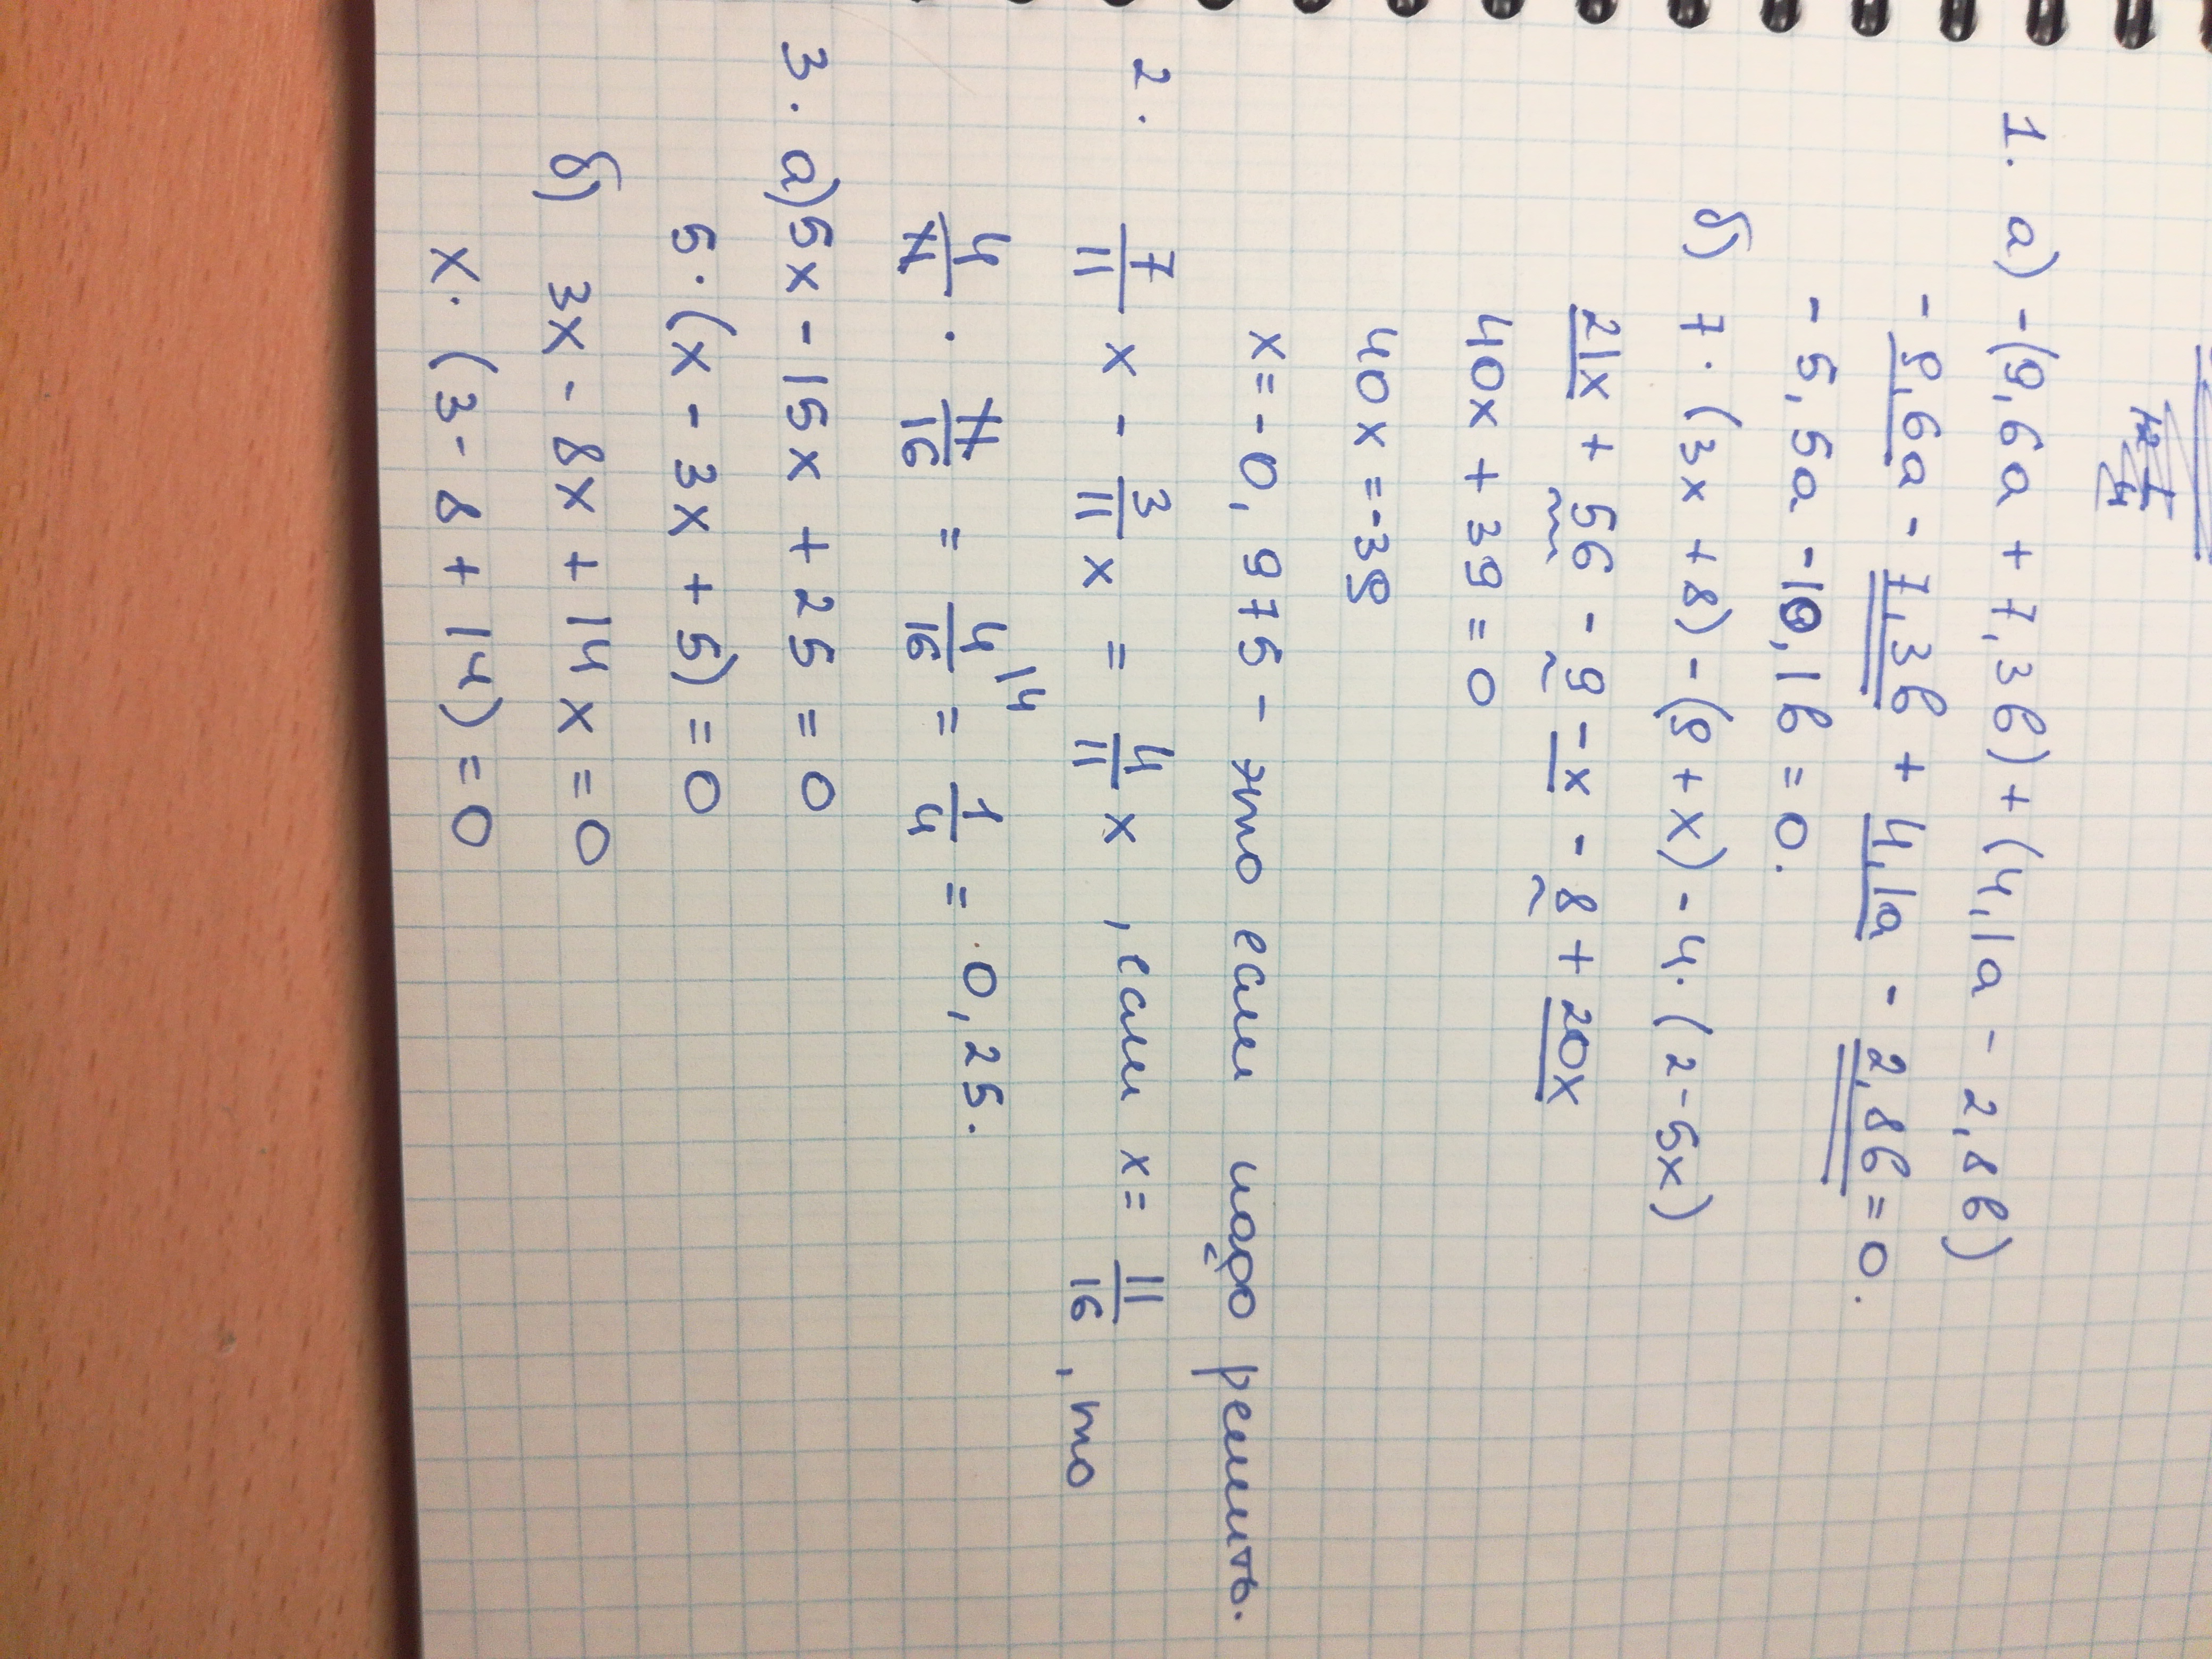 1. а) -(9,6а + 7,3в) + (4,1а - 2,8в)
- 9,6а - 7,3в + 4,1а - 2,8в = 0.
- 5,5а - 10,1в = 0.
б) 7 · (3х + 8) - (9 + х) - 4 · (2 - 5х)
21х + 56 - 9 - х - 8 + 20х
40х + 39 = 0
40х = -39
х = -0,975 - это если надо решить.
2. 7/11 х - 3/11 х = 4/11 х , если х = 11/16 , то
4/11 · 11/16 = 4/16 |4 = 1/4 = 0,25.
3. а) 5х - 15х + 25 = 0
5 · (х - 3х + 5) = 0
б) 3х - 8х + 14х = 0
х · (3 - 8 + 14) = 0